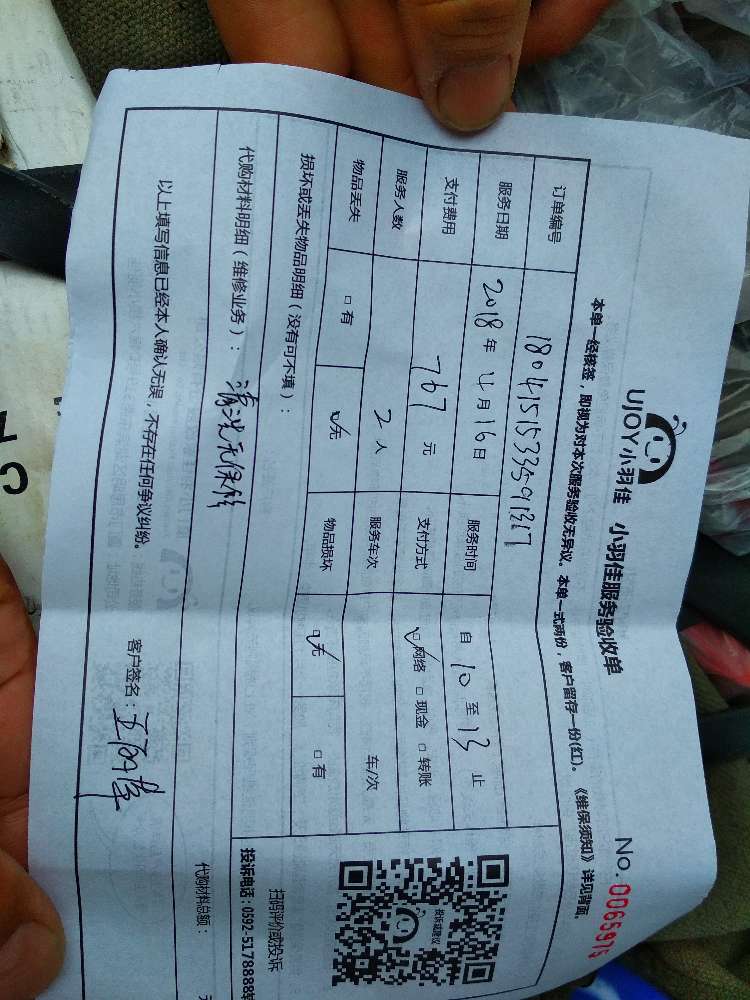 UJOY小羽佳 小羽佳服务验收单
No.0065975
本单一经核签，即视为对本次服务验收无异议。本单一式两份，客户留存一份(红)。《维保须知》详见背面。
订单编号 18041515335091317
服务日期 2018年 4月 16日 服务时间 自 10 至 13 止
支付费用 767 元 支付方式 ☑网络 □现金 □转账
服务人数 2 人 服务车次 车/次
物品丢失 □有 ☑无 物品损坏 ☑无 □有
损坏或丢失物品明细（没有可不填）：
代购材料明细（维修业务）：清洗无保修
代购材料总额：
以上填写信息已经本人确认无误，不存在任何争议纠纷。
客户签名：
投诉或建议
扫码评价或投诉
投诉电话：0592-5178888